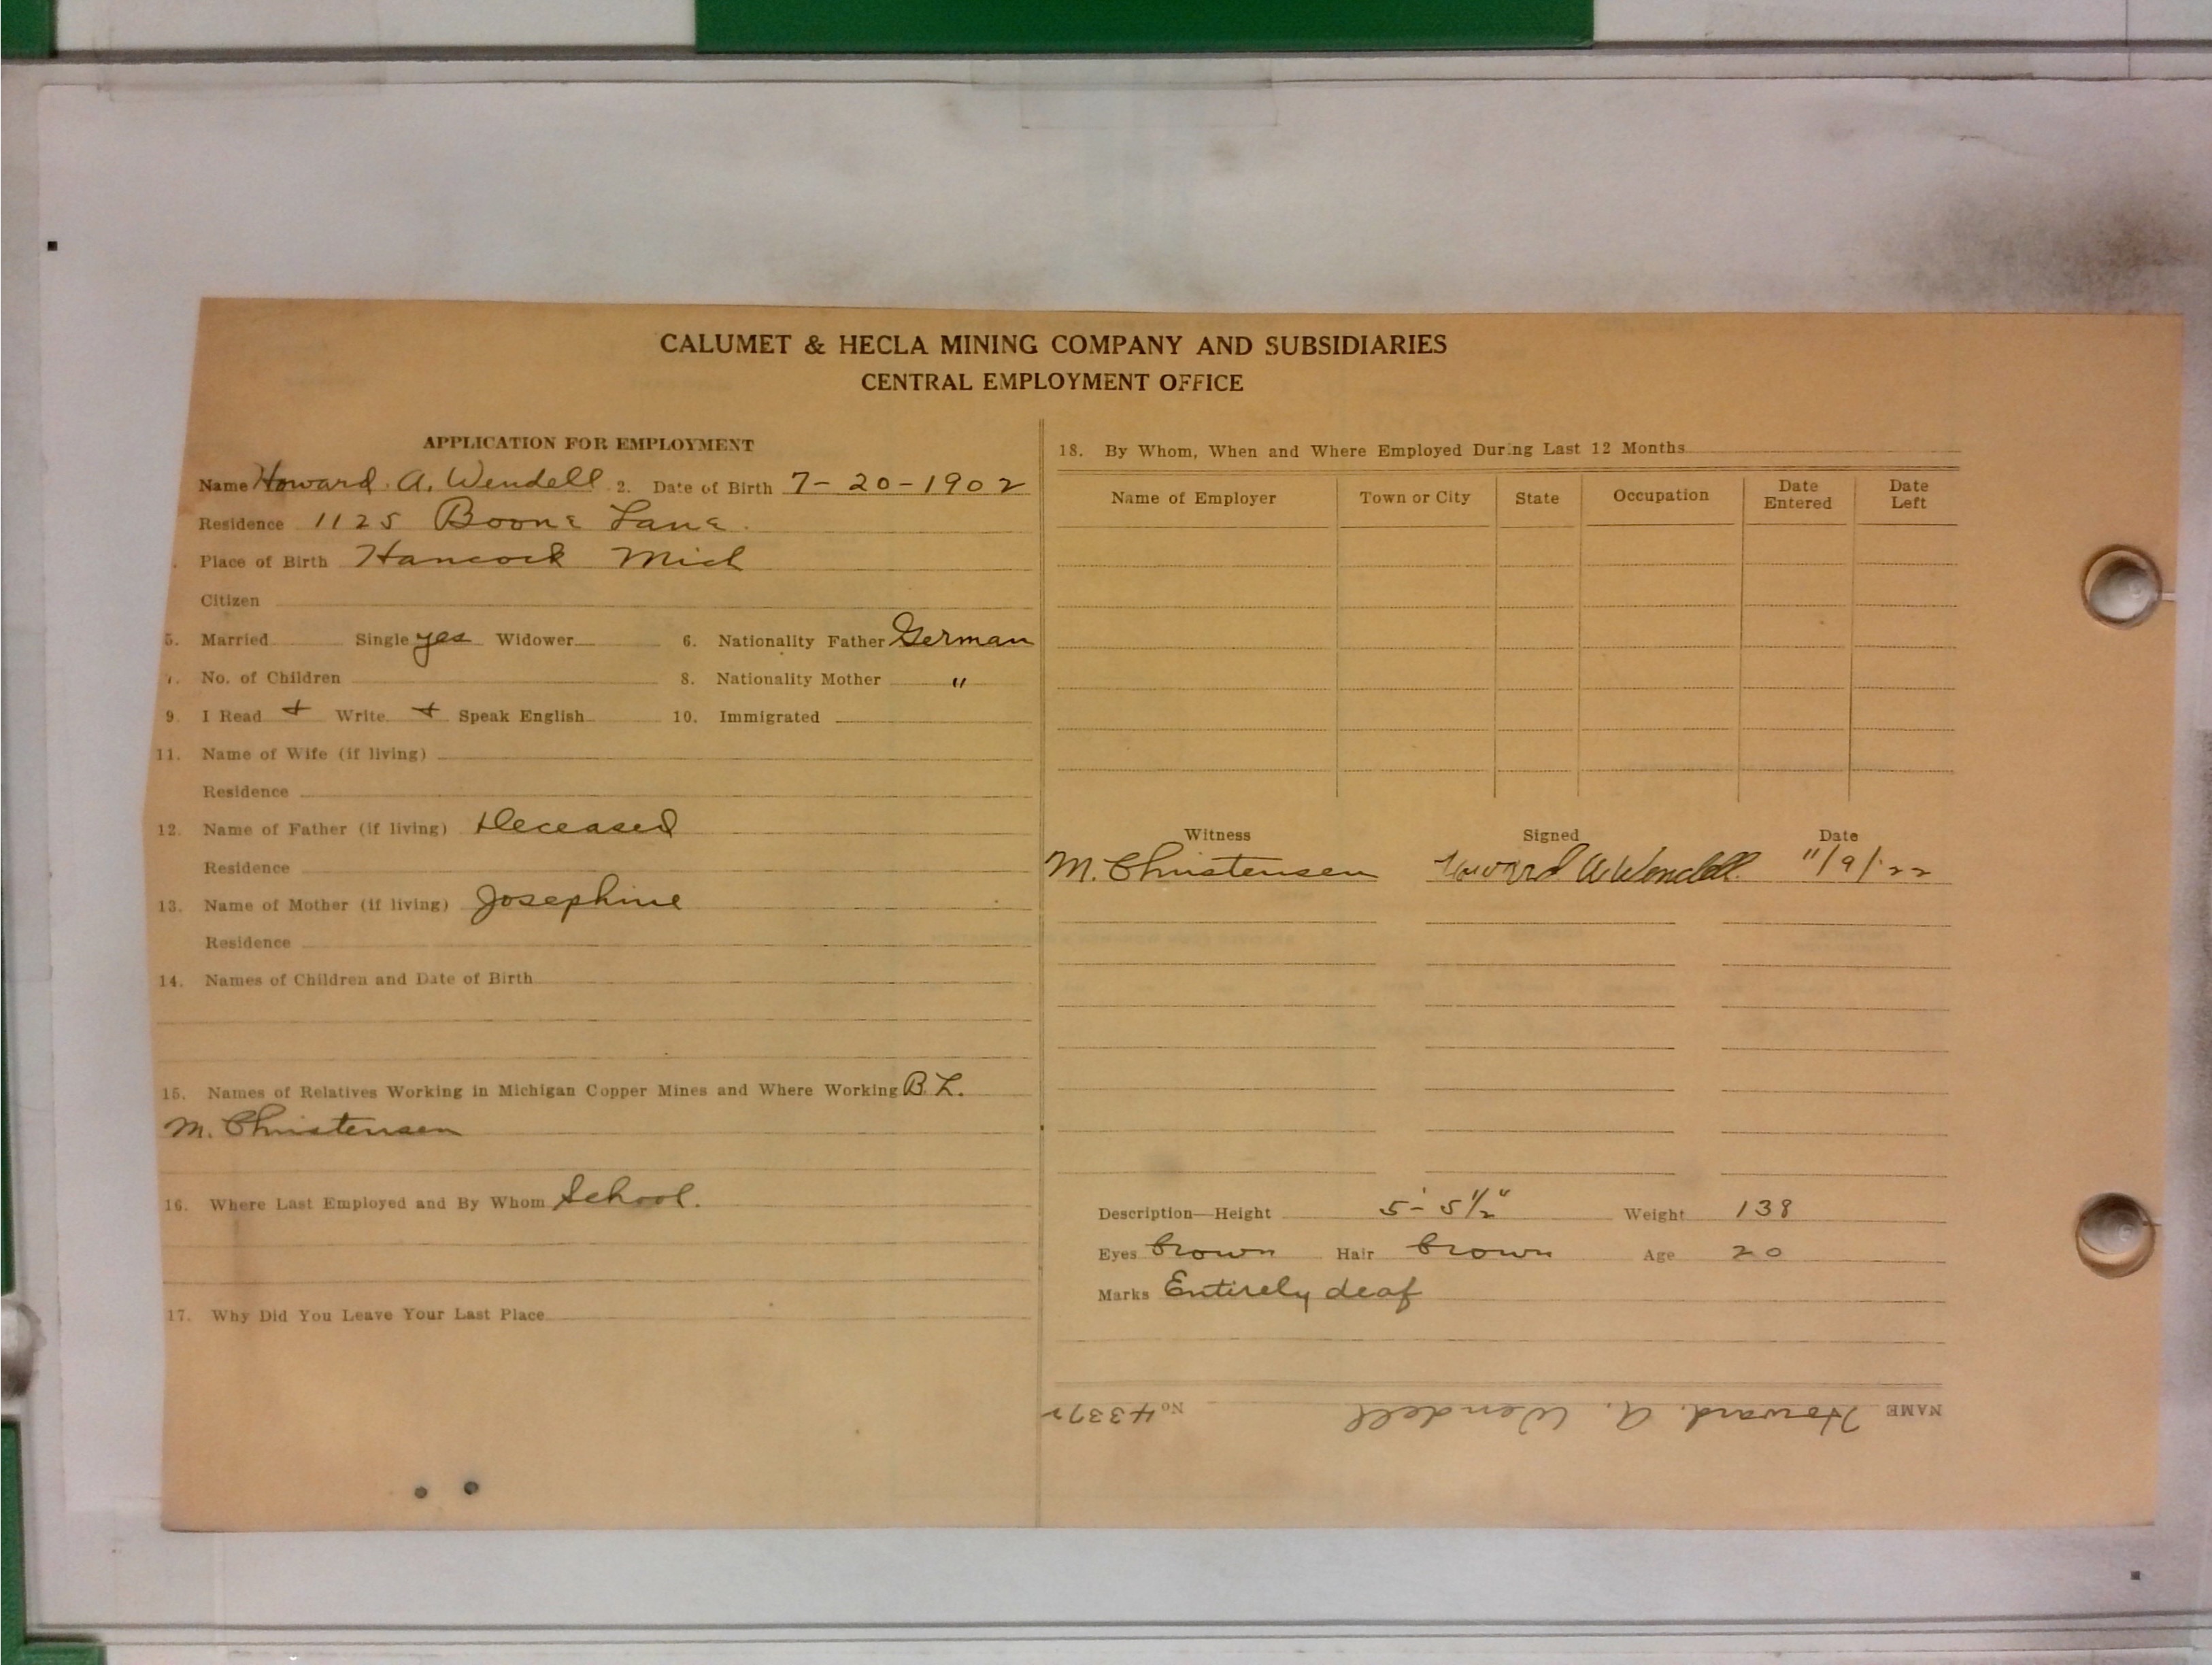 CALUMET & HECLA MINING COMPANY AND SUBSIDIARIES
CENTRAL EMPLOYMENT OFFICE
APPLICATION FOR EMPLOYMENT
Name Howard. A. Wendell 2. Date of Birth 7-20-1902
Residence 1125 Boone Lane.
Place of Birth Hancock Mich
Citizen
5. Married Single yes Widower 6. Nationality Father German
7. No. of Children 8. Nationality Mother "
9. I Read + Write + Speak English 10. Immigrated
11. Name of Wife (if living)
Residence
12. Name of Father (if living) Deceased
Residence
13. Name of Mother (if living) Josephine
Residence
14. Names of Children and Date of Birth
15. Names of Relatives Working in Michigan Copper Mines and Where Working B.L.
M. Christensen
16. Where Last Employed and By Whom School.
17. Why Did You Leave Your Last Place
18. By Whom, When and Where Employed During Last 12 Months
Name of Employer Town or City State Occupation Date Entered Date Left
Witness Signed Date
M. Christensen Howard A Wendell 11/9/'22
Description—Height 5'-5 1/2" Weight 138
Eyes brown Hair brown Age 20
Marks Entirely deaf
NAME Howard. A. Wendell No 43372